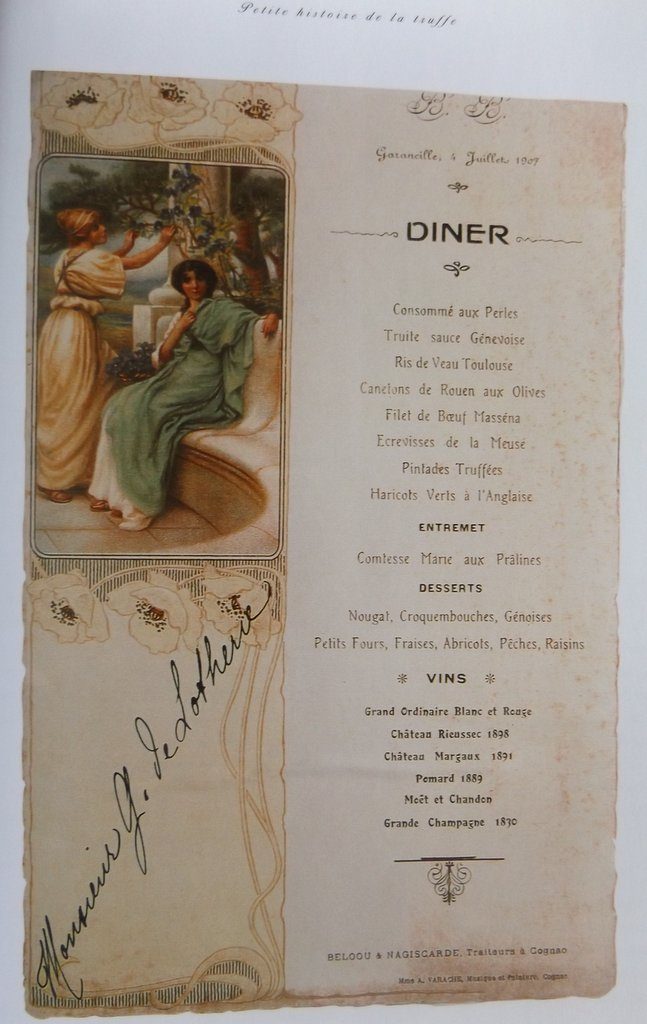 Petite histoire de la truffe
B. B.
Garancille, 4 Juillet 1907
DINER
Consommé aux Perles
Truite sauce Génevoise
Ris de Veau Toulouse
Canetons de Rouen aux Olives
Filet de Bœuf Masséna
Ecrevisses de la Meuse
Pintades Truffées
Haricots Verts à l'Anglaise
ENTREMET
Comtesse Marie aux Prâlines
DESSERTS
Nougat, Croquembouches, Génoises
Petits Fours, Fraises, Abricots, Pêches, Raisins
* VINS *
Grand Ordinaire Blanc et Rouge
Château Rieussec 1898
Château Margaux 1891
Pomard 1889
Moët et Chandon
Grande Champagne 1830
BELOOU & NAGISCARDE, Traiteurs à Cognac
Mme A. VARACHE, Musique et Peinture, Cognac
Monsieur G. de Lotherie